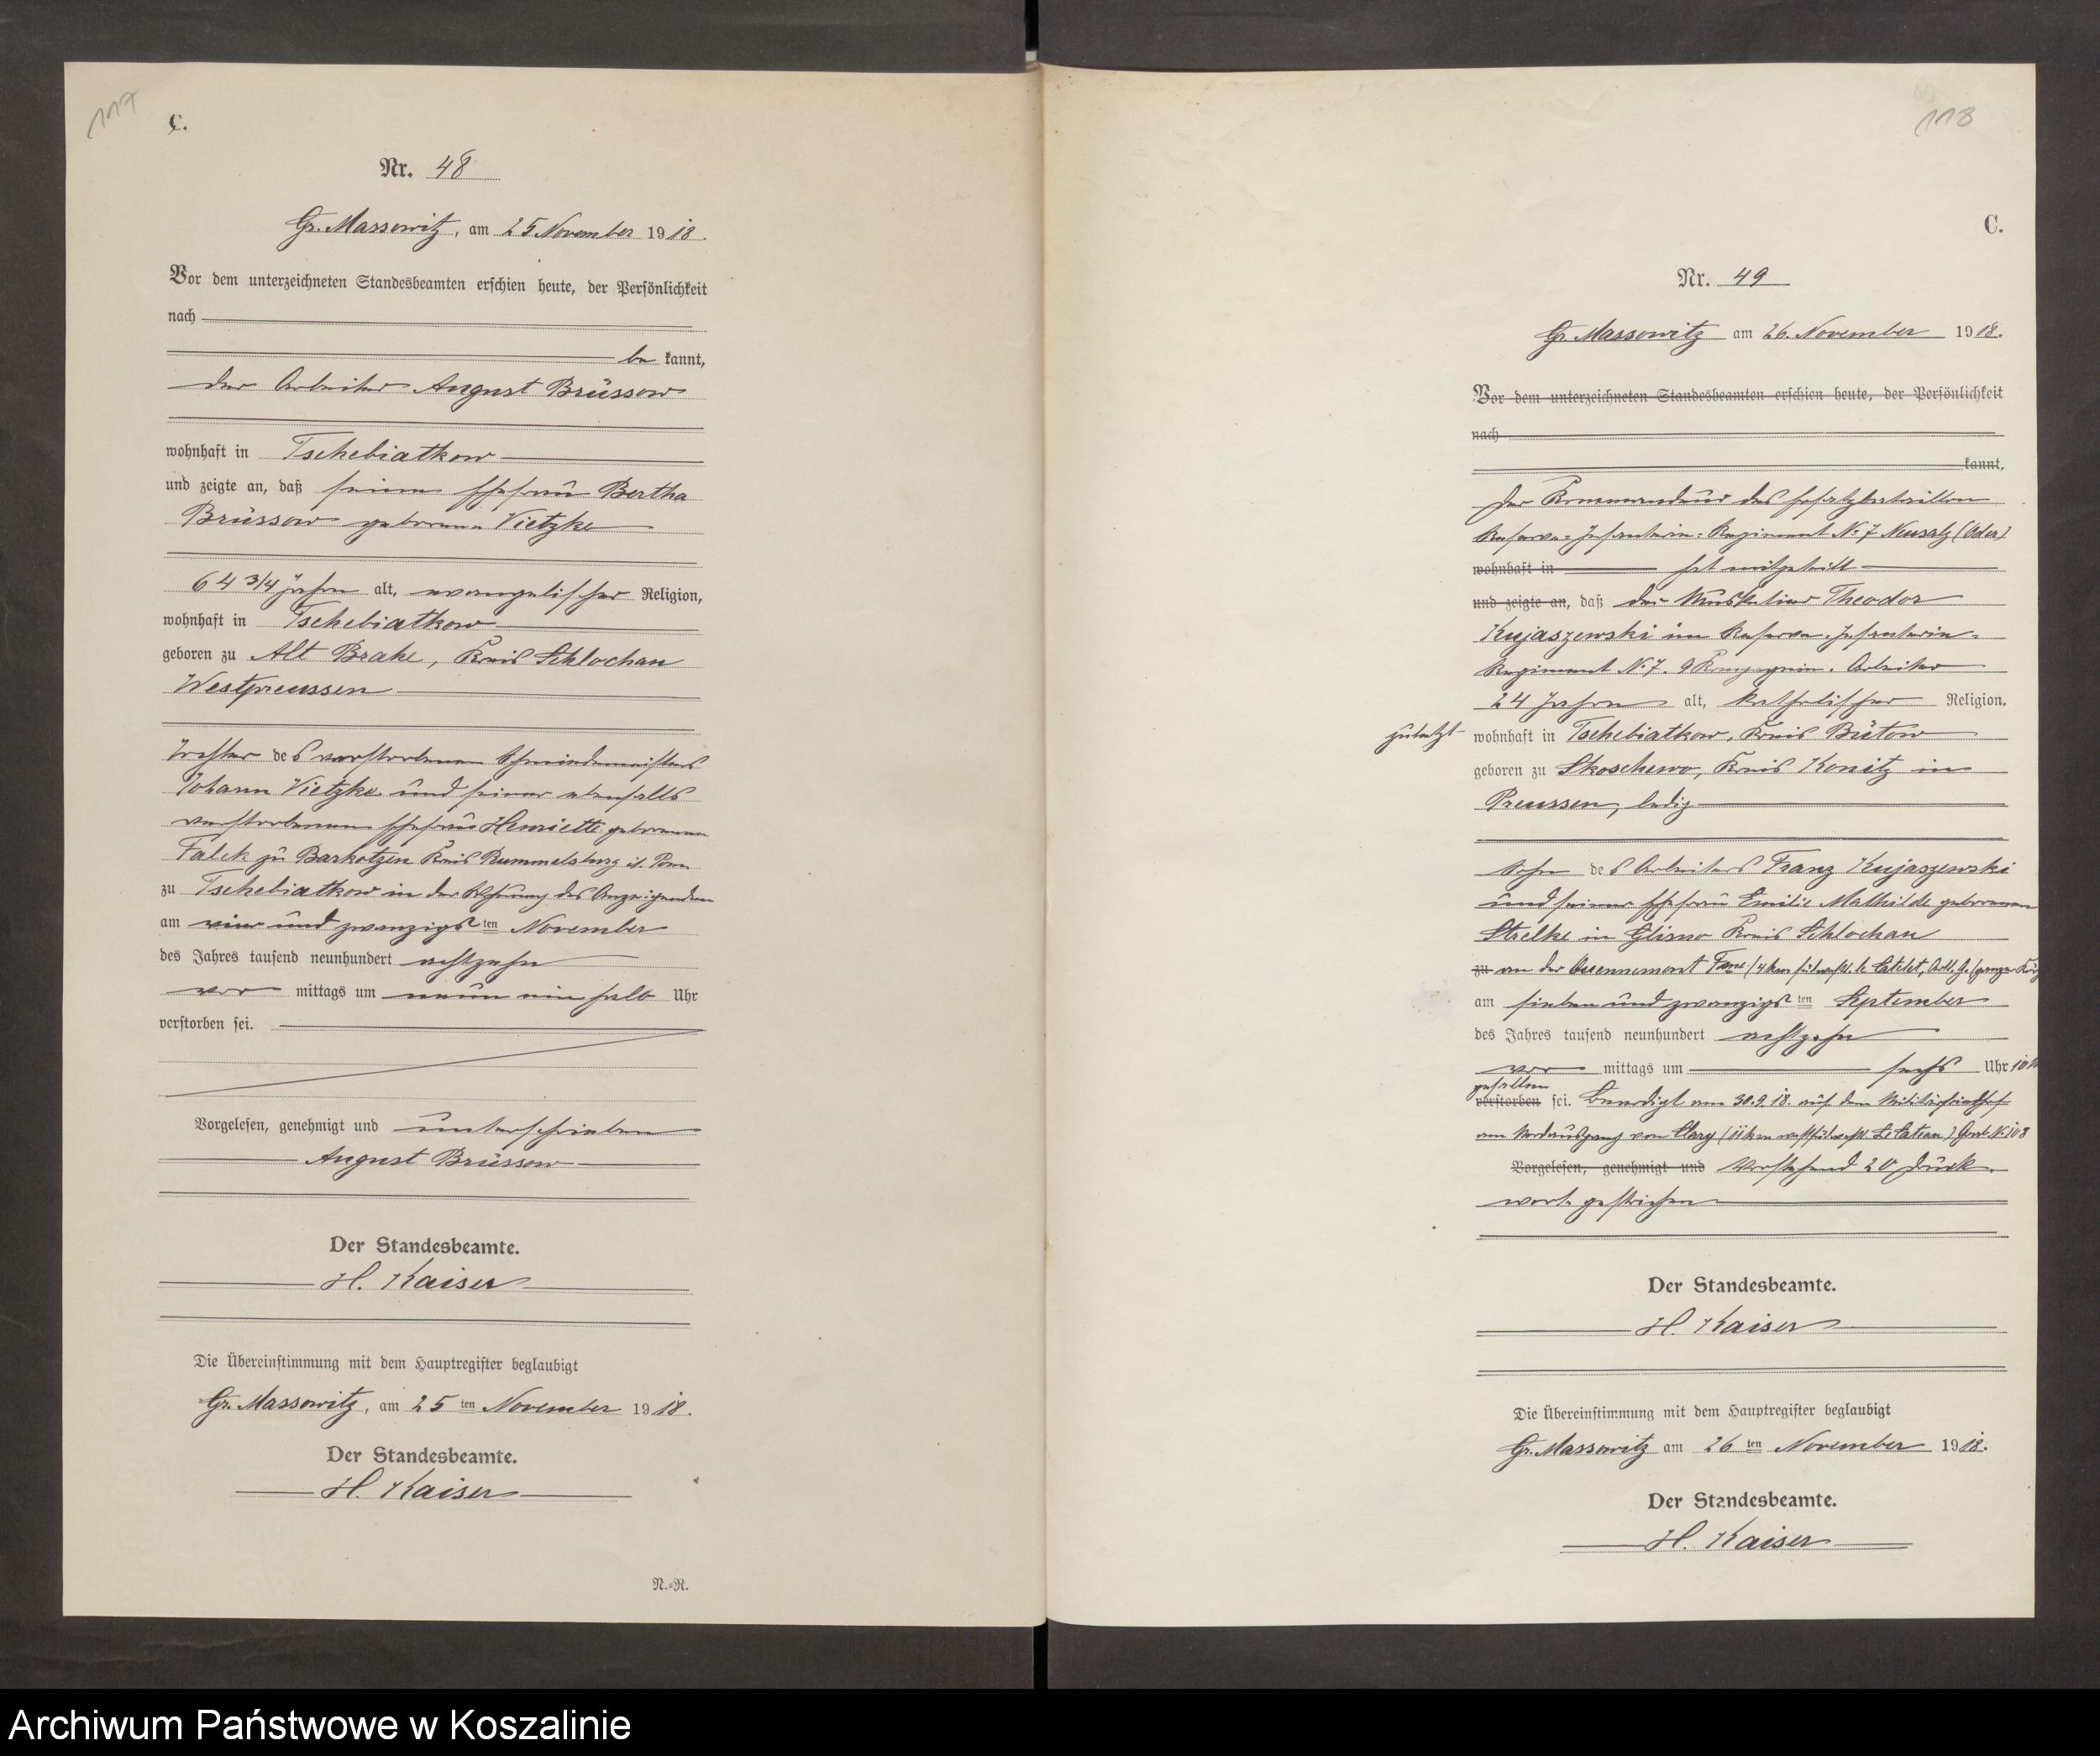 117
C.
Nr. 48
Gr. Massowitz, am 25 November 1918.
Vor dem unterzeichneten Standesbeamten erschien heute, der Persönlichkeit
nach
be kannt,
der Arbeiter August Brüssow
wohnhaft in Tschebiatkow
und zeigte an, daß seine Ehefrau Bertha
Brüssow geborene Vietzke
64 3/4 Jahre alt, evangelischer Religion,
wohnhaft in Tschebiatkow
geboren zu Alt Brahe, Kreis Schlochau
Westpreussen
Tochter des verstorbenen Schneidermeisters
Johann Vietzke und seiner ebenfalls
verstorbenen Ehefrau Henriette geborenen
Falck zu Barkotzen Kreis Rummelsburg i. Pom
zu Tschebiatkow in der Wohnung des Anzeigenden
am vier und zwanzigsten November
des Jahres tausend neunhundert achtzehn
vor mittags um neun ein halb Uhr
verstorben sei.
Vorgelesen, genehmigt und unterschrieben
August Brüssow
Der Standesbeamte.
H. Kaiser
Die Übereinstimmung mit dem Hauptregister beglaubigt
Gr. Massowitz, am 25 ten November 1918.
Der Standesbeamte.
H. Kaiser
N.-R.
118
C.
Nr. 49
Gr. Massowitz am 26. November 1918.
Vor dem unterzeichneten Standesbeamten erschien heute, der Persönlichkeit
nach
kannt,
Der Kommandeur des Ersatzbataillon
Reserve-Infanterie-Regiment No 7 Neusalz (Oder)
wohnhaft in hat mitgeteilt
und zeigte an, daß der Musketier Theodor
Kujaszewski im Reserve-Infanterie-
Regiment No 7. 9 Kompagnie. Arbeiter
24 Jahre alt, katholischer Religion,
zuletzt wohnhaft in Tschebiatkow, Kreis Bütow
geboren zu Skoschewo, Kreis Konitz in
Preussen, ledig
Sohn des Arbeiters Franz Kujaszewski
und seiner Ehefrau Emilie Mathilde geborenen
Strelke in Glisno Kreis Schlochau
zu an der Quennemont Fme (4 km südwestl. le Catelet, Artl. G. (ganzer
am sieben und zwanzigsten September
des Jahres tausend neunhundert achtzehn
vor mittags um sechs Uhr 10
gefallen
verstorben sei. Beerdigt am 30.9.18. auf dem Militärfriedhof
am Nordausgang von Clary (11 km westsüdwestl. Le Cateau) Grab No 108
Vorgelesen, genehmigt und Vorstehend 20 Druck
worte gestrichen
Der Standesbeamte.
H. Kaiser
Die Übereinstimmung mit dem Hauptregister beglaubigt
Gr. Massowitz am 26 ten November 1918.
Der Standesbeamte.
H. Kaiser
Archiwum Państwowe w Koszalinie